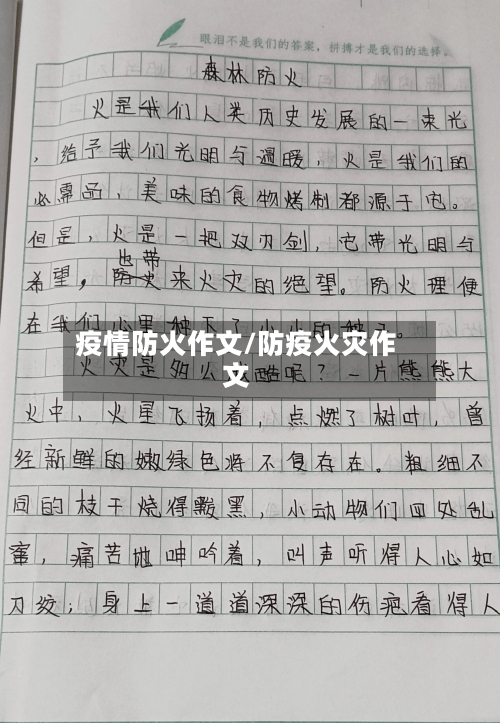 眼泪不是我们的答案，拼搏才是我们的选择。
森林防火
火是我们人类历史发展的一束光
，给予我们光明与温暖，火是我们的
必需品，美味的食物烤制都源于它。
但是，火是一把双刃剑，它带光明与
也带
希望，防火来火灾的绝望。防火理便
在我们心里种下了小小的种子。
疫情防火作文/防疫火灾作
文
火灾是多么残酷呢？一片熊熊大
火中，火星飞扬着，点燃了树叶，曾
经新鲜的嫩绿色将不复存在。粗细不
同的枝干烧得黢黑，小动物们四处乱
窜，痛苦地呻吟着，叫声听得人心如
刀绞；身上一道道深深的伤疤看得人